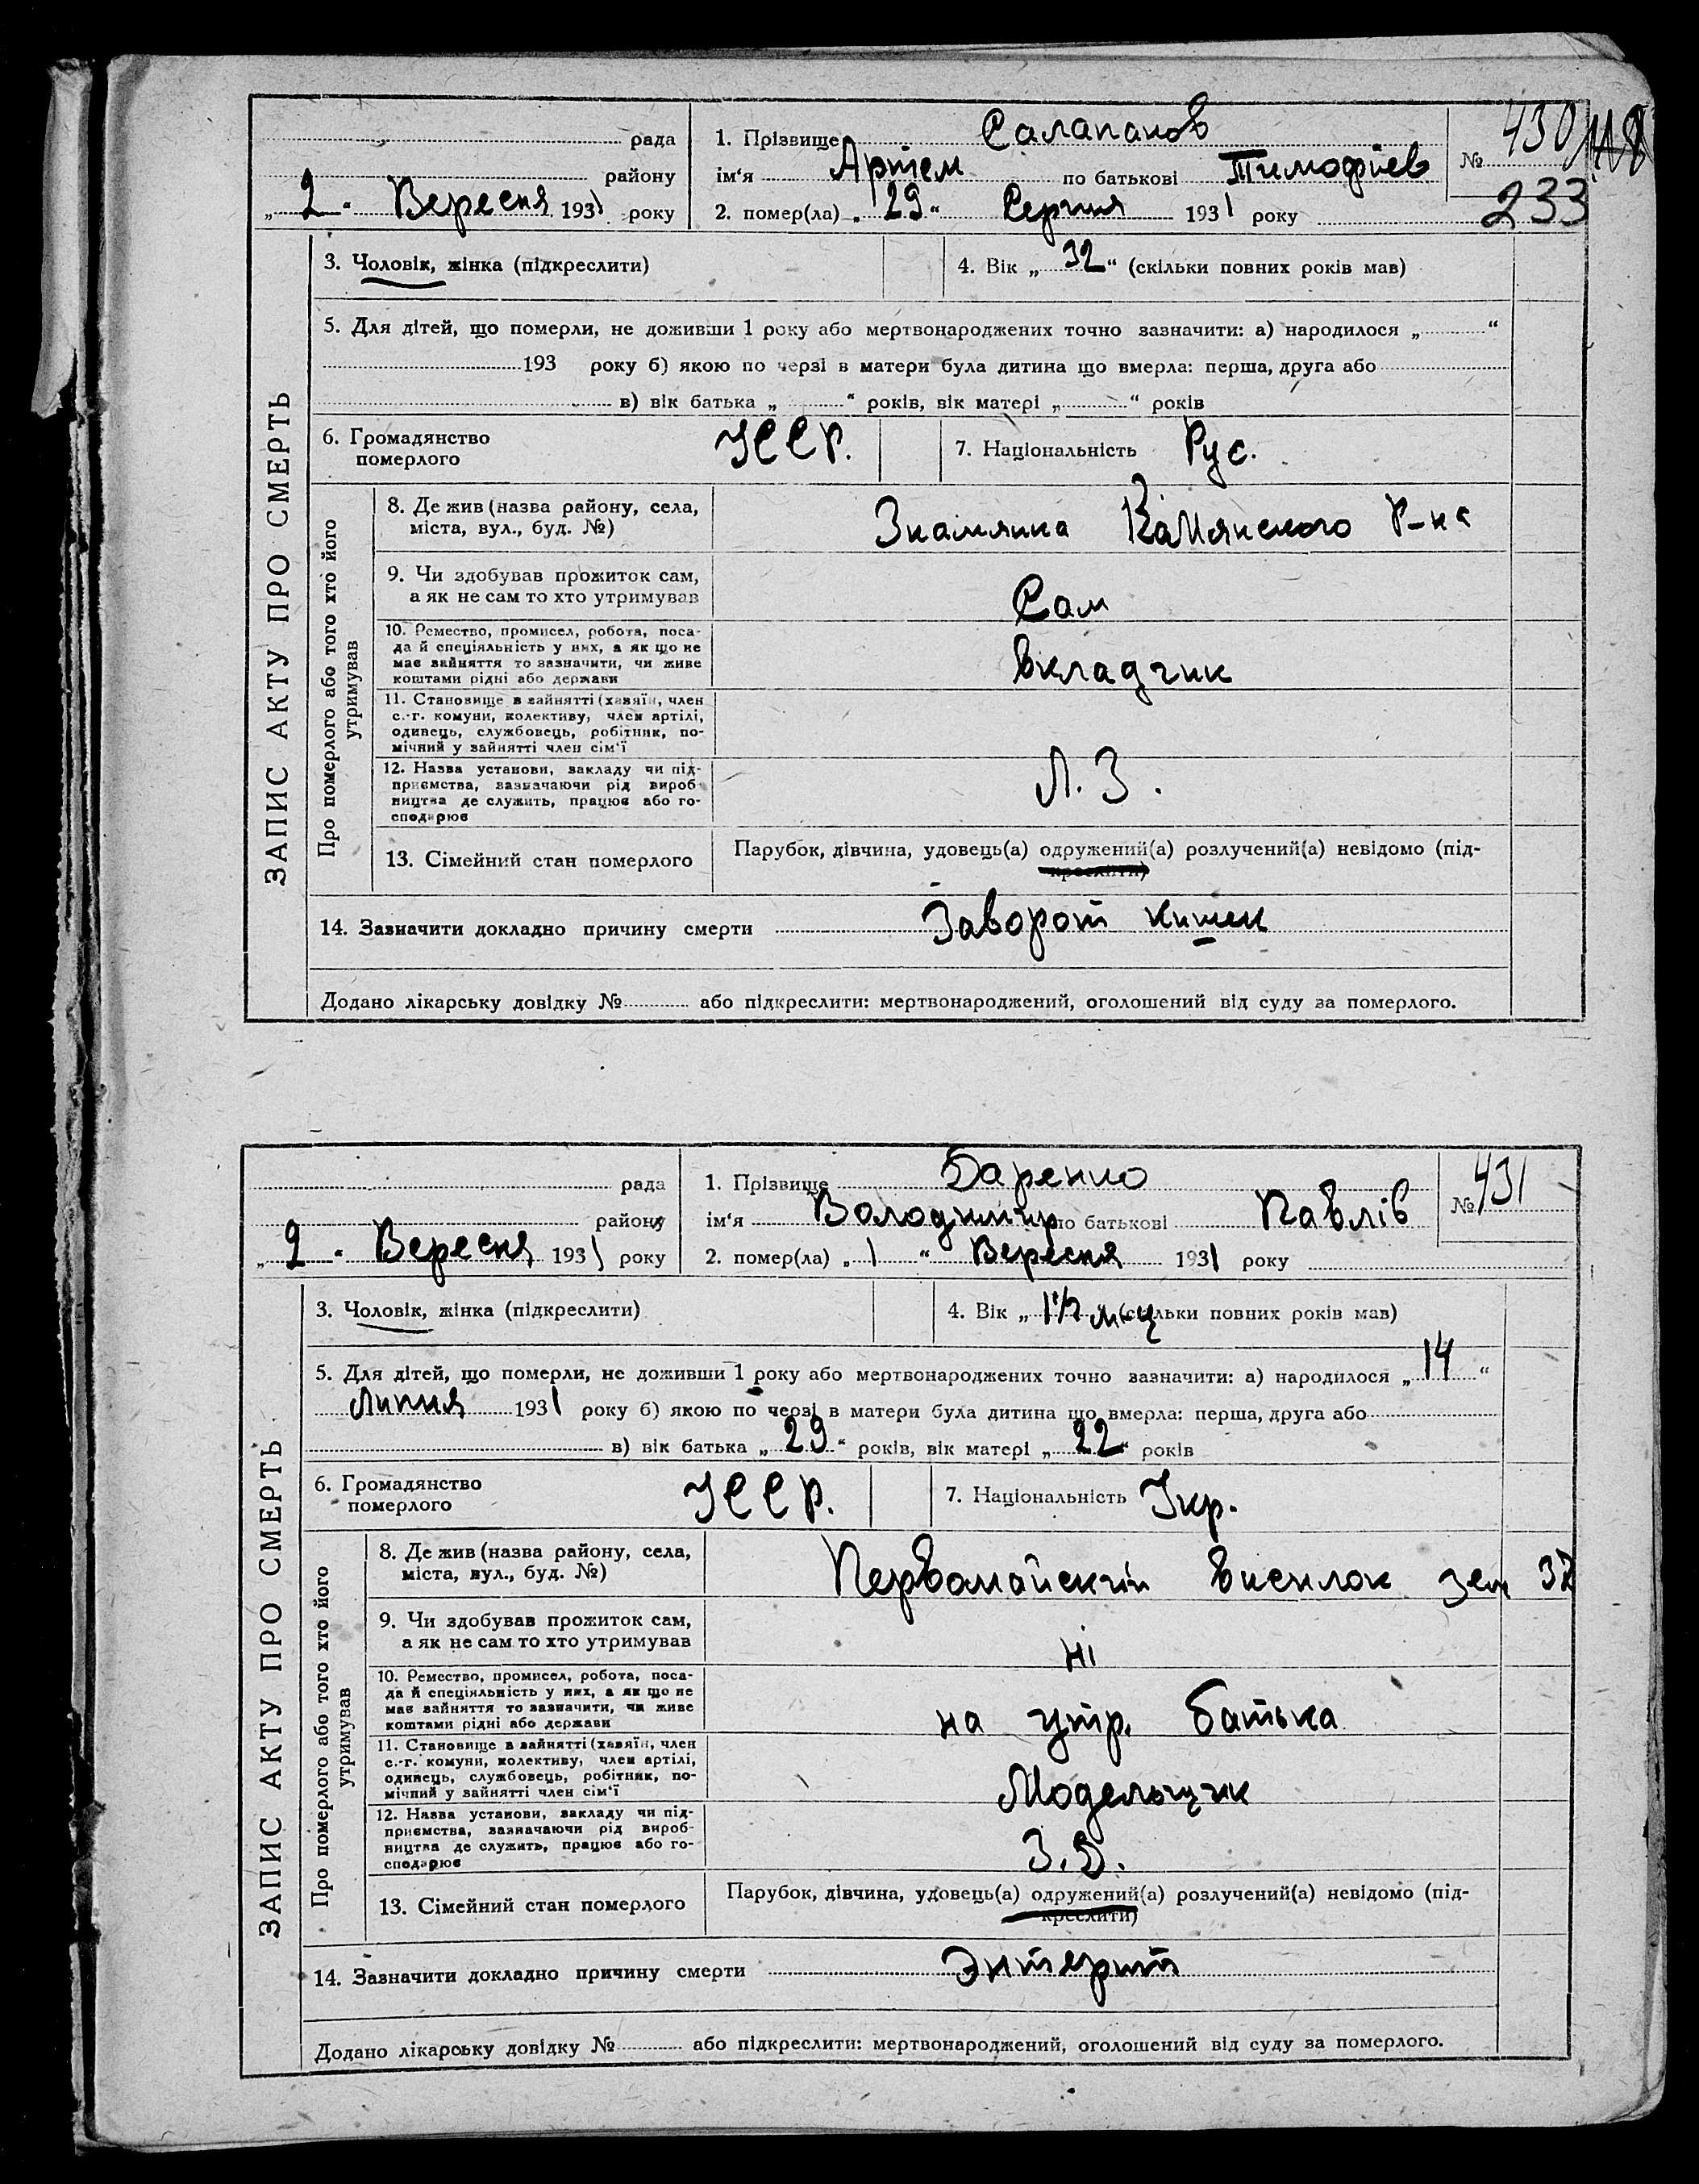 рада
району
„ 2 “ Вересня 1931 року
1. Прізвище Салапанов
ім‘я Артем по батькові Тимофіев
2. помер(ла) „ 29 “ Серпня 1931 року
№ 430
118
233
ЗАПИС АКТУ ПРО СМЕРТЬ
3. Чоловік, жінка (підкреслити)
4. Вік „ 32 “ (скільки повних років мав)
5. Для дітей, що померли, не доживши 1 року або мертвонароджених точно зазначити: а) народилося „ “
193 року б) якою по черзі в матери була дитина що вмерла: перша, друга або
в) вік батька „ “ років, вік матері „ “ років
6. Громадянство
померлого
УССР.
7. Національність Рус.
Про померлого або того хто його
утримував
8. Де жив (назва району, села,
міста, вул., буд. №)
Знамянка Камянского Р-на
9. Чи здобував прожиток сам,
а як не сам то хто утримував
Сам
10. Ремество, промисел, робота, поса-
да й спеціяльність у них, а як що не
має вайняття то зазначити, чи живе
коштами рідні або держави
вкладчик
11. Становище в зайнятті (хазяїн, член
с.-г. комуни, колективу, член артілі,
одинець, службовець, робітник, по-
мічний у зайнятті член сім‘ї
12. Назва установи, закладу чи під-
приємства, зазначаючи рід вироб-
ництва де служить, працює або го-
сподарює
Л. З.
13. Сімейний стан померлого
Парубок, дівчина, удовець(а) одружений(а) розлучений(а) невідомо (під-
креслити)
14. Зазначити докладно причину смерти Заворот кишек
Додано лікарську довідку № або підкреслити: мертвонароджений, оголошений від суду за померлого.
рада
району
„ 2 “ Вересня 1931 року
1. Прізвище Даренко
ім‘я Володимир по батькові Павлів
2. помер(ла) „ 1 “ Вересня 1931 року
№ 431
ЗАПИС АКТУ ПРО СМЕРТЬ
3. Чоловік, жінка (підкреслити)
4. Вік „ 1½ м-ц (скільки повних років мав)
5. Для дітей, що померли, не доживши 1 року або мертвонароджених точно зазначити: а) народилося „ 14 “
Липня 1931 року б) якою по черзі в матери була дитина що вмерла: перша, друга або
в) вік батька „ 29 “ років, вік матері „ 22 “ років
6. Громадянство
померлого
УССР.
7. Національність Укр.
Про померлого або того хто його
утримував
8. Де жив (назва району, села,
міста, вул., буд. №)
Первомайский виселок зем 32
9. Чи здобував прожиток сам,
а як не сам то хто утримував
ні
10. Ремество, промисел, робота, поса-
да й спеціяльність у них, а як що не
має вайняття то зазначити, чи живе
коштами рідні або держави
на утр. батька
11. Становище в зайнятті (хазяїн, член
с.-г. комуни, колективу, член артілі,
одинець, службовець, робітник, по-
мічний у зайнятті член сім‘ї
Модельщик
12. Назва установи, закладу чи під-
приємства, зазначаючи рід вироб-
ництва де служить, працює або го-
сподарює
З. Д.
13. Сімейний стан померлого
Парубок, дівчина, удовець(а) одружений(а) розлучений(а) невідомо (під-
креслити)
14. Зазначити докладно причину смерти Энтерит
Додано лікарську довідку № або підкреслити: мертвонароджений, оголошений від суду за померлого.